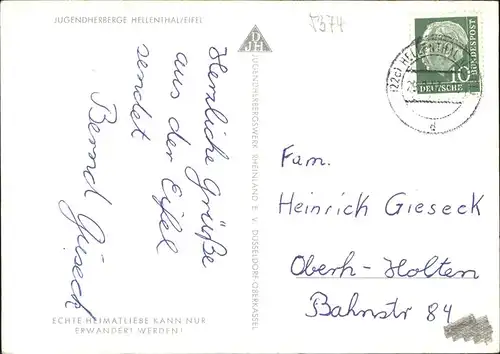 JUGENDHERBERGE HELLENTHAL/EIFEL
5374
DJH
Herzliche Grüße
aus der Eifel
sendet
Bernd Gieseck
ECHTE HEIMATLIEBE KANN NUR
ERWANDERT WERDEN!
JUGENDHERBERGSWERK RHEINLAND E. V. DÜSSELDORF-OBERKASSEL
(22c) HELLENTHAL
d
10
DEUTSCHE
BUNDESPOST
Fam.
Heinrich Gieseck
Oberh-Holten
Bahnstr 84